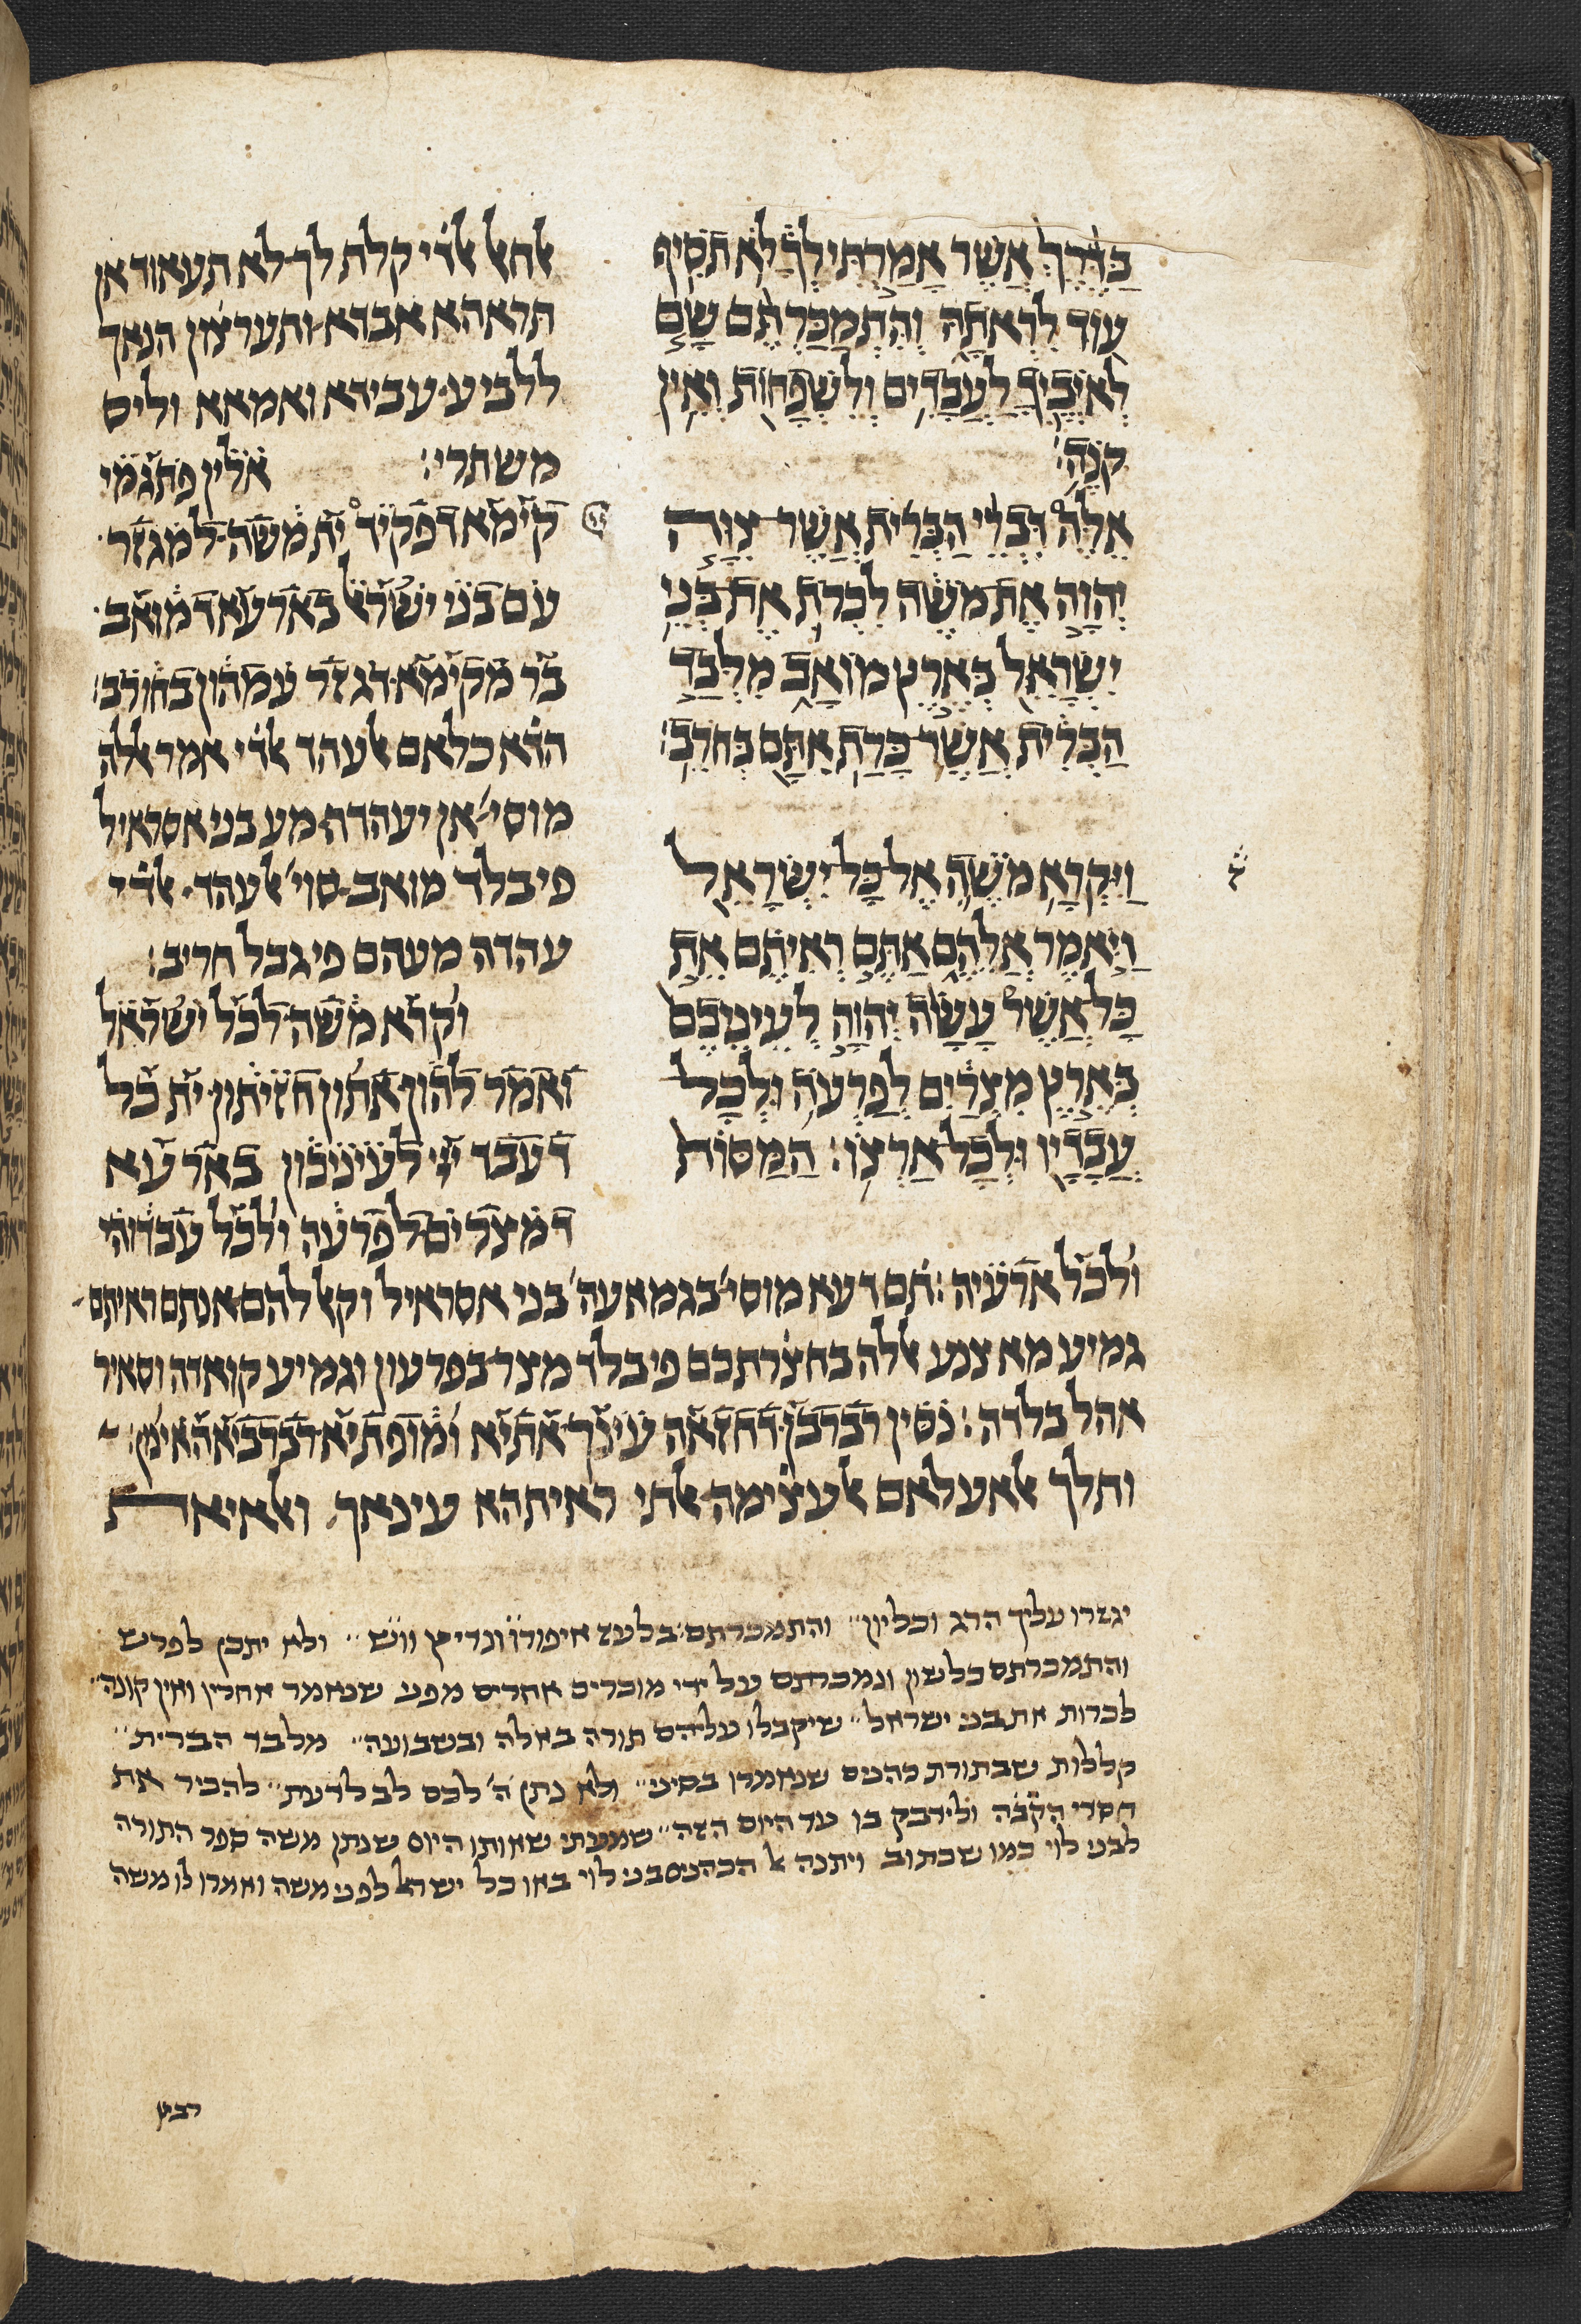 בַּדֶּרֶךְ אֲשֶׁר אָמַרְתִּי לְךָ לֹא תֹסִיף
עוֹד לִרְאֹתָהּ וְהִתְמַכַּרְתֶּם שָׁם
לְאֹיְבֶיךָ לַעֲבָדִים וְלִשְׁפָחוֹת וְאֵין
קֹנֶה׃
אֵלֶּה דִבְרֵי הַבְּרִית אֲשֶׁר צִוָּה
יְהוָה אֶת מֹשֶׁה לִכְרֹת אֶת בְּנֵי
יִשְׂרָאֵל בְּאֶרֶץ מוֹאָב מִלְּבַד
הַבְּרִית אֲשֶׁר כָּרַת אִתָּם בְּחֹרֵב׃
וַיִּקְרָא מֹשֶׁה אֶל כָּל יִשְׂרָאֵל
וַיֹּאמֶר אֲלֵהֶם אַתֶּם רְאִיתֶם אֵת
כָּל אֲשֶׁר עָשָׂה יְהוָה לְעֵינֵיכֶם
בְּאֶרֶץ מִצְרַיִם לְפַרְעֹה וּלְכָל
עֲבָדָיו וּלְכָל אַרְצוֹ׃ הַמַּסּוֹת
ﭏחﭏ ﭏדׄי קלת לך לא תעאוד אן
תראהא אבדא ותערצׄון הנאך
ללביע עבידא ואמאא וליס
משתרי׃ אלין פתגמי
קימא דפקיד יי ית משה למגזר
עם בני ישראל בארעא דמואב
בר מקימא דגזר עמהון בחורב׃
הדׄא כלאם ﭏעהד ﭏדׄי אמר ﭏלה
מוסי׳ אן יעהדה מע בני אסראיל
פי בלד מואב סוי׳ ﭏעהד ﭏדׄי
עהדה מעהם פי גבל חריב׃
וקרא משה לכל ישראל
ואמר להון אתון חזיתון ית כל
דעבד יי לעיניכון בארעא
דמצרים לפרעה ולכל עבדוהי
ולכל ארעיה׃ תׄם דעא מוסי׳ בגמאעה׳ בני אסראיל וקﭏ להם אנתם ראיתם
גמיע מא צנע ﭏלה בחצׄרתכם פי בלד מצר בפרעון וגמיע קואדה וסאיר
אהל בלדה׃ נסין רברבן דחזאה עינך אתיא ומופתיא רברביא האינון׃
ותלך ﭏאעלאם ﭏעצׄימה ﭏתי ראיתהא עינאך ואלאיאת
יגזרו עליך הרג וכליון״ והתמכרתם׳ בלעז איפורו֗ונדריץ וו֗ש״ ולא יתכן לפרש
והתמכרתם כלשון ונמכרתם על ידי מוכרים אחרים מפני שנאמר אחריו ואין קונה״
לכרות את בני ישראל״ שיקבלו עליהם תורה באלה ובשבועה״ מלבד הברית״
קללות שבתורת כהנים שנאמרו בסיני״ ולא נתן ה׳ לכם לב לדעת״ להכיר את
חסדי הק֗ב֗ה ולידבק בו עד היום הזה״ שמעתי שאותו היום שנתן משה ספר התורה
לבני לוי כמו שכתוב ויתנה ﭏ הכהנים בני לוי באו כל ישרﭏ לפני משה ואמרו לו משה